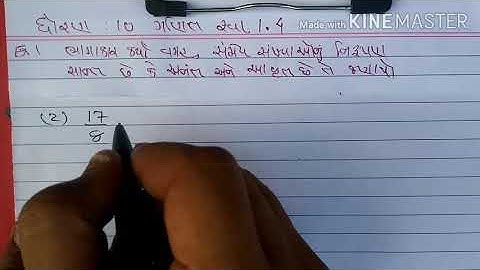 ધોરણ : 10 ગણિત સ્વા. 1.4
Made with KINEMASTER
પ્ર.1 ભાગાકાર કર્યા વગર, સંમેય સંખ્યાઓનું નિરૂપણ
સાન્ત છે કે અનંત અને આવૃત્ત છે તે જણાવો
(2) 17
8